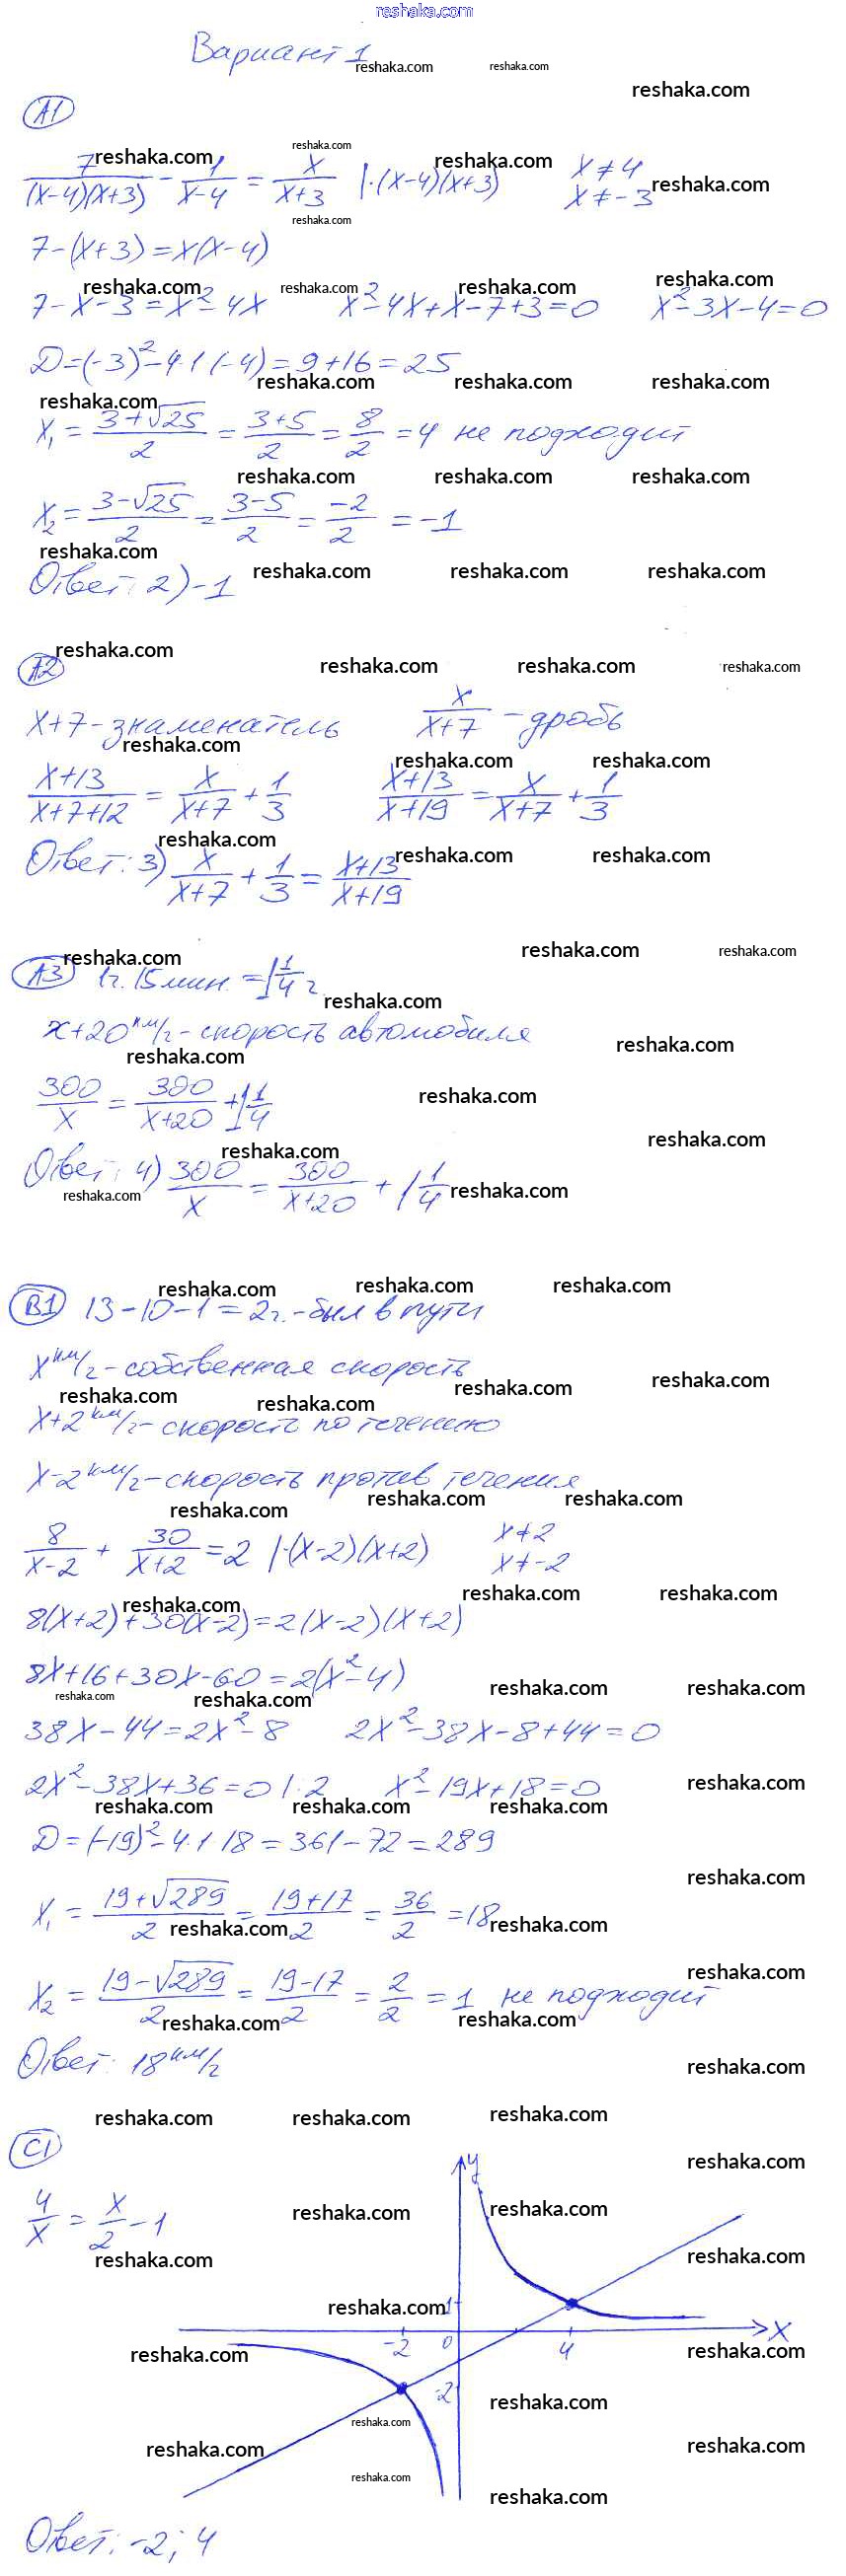 reshaka.com
Вариант 1
A1
7/((x-4)(x+3)) - 1/(x-4) = x/(x+3) |·(x-4)(x+3) x≠4
x≠-3
7-(x+3)=x(x-4)
7-x-3=x²-4x x²-4x+x-7+3=0 x²-3x-4=0
D=(-3)²-4·1·(-4)=9+16=25
x₁=(3+√25)/2=(3+5)/2=8/2=4 не подходит
x₂=(3-√25)/2=(3-5)/2=-2/2=-1
Ответ: 2)-1
A2
x+7-знаменатель x/(x+7) -дробь
(x+13)/(x+7+12)=x/(x+7)+1/3 (x+13)/(x+19)=x/(x+7)+1/3
Ответ: 3) x/(x+7)+1/3=(x+13)/(x+19)
A3 1ч. 15мин. =1 1/4 ч
x+20 км/ч-скорость автомобиля
300/x=300/(x+20)+1 1/4
Ответ: 4) 300/x=300/(x+20)+1 1/4
B1 13-10-1=2ч.-был в пути
x км/ч-собственная скорость
x+2 км/ч-скорость по течению
x-2 км/ч-скорость против течения
8/(x-2)+30/(x+2)=2 |·(x-2)(x+2) x≠2
x≠-2
8(x+2)+30(x-2)=2(x-2)(x+2)
8x+16+30x-60=2(x²-4)
38x-44=2x²-8 2x²-38x-8+44=0
2x²-38x+36=0 |:2 x²-19x+18=0
D=(-19)²-4·1·18=361-72=289
x₁=(19+√289)/2=(19+17)/2=36/2=18
x₂=(19-√289)/2=(19-17)/2=2/2=1 не подходит
Ответ: 18 км/ч
C1
4/x=x/2-1
y
1
-2 0 4 x
-2
Ответ: -2; 4